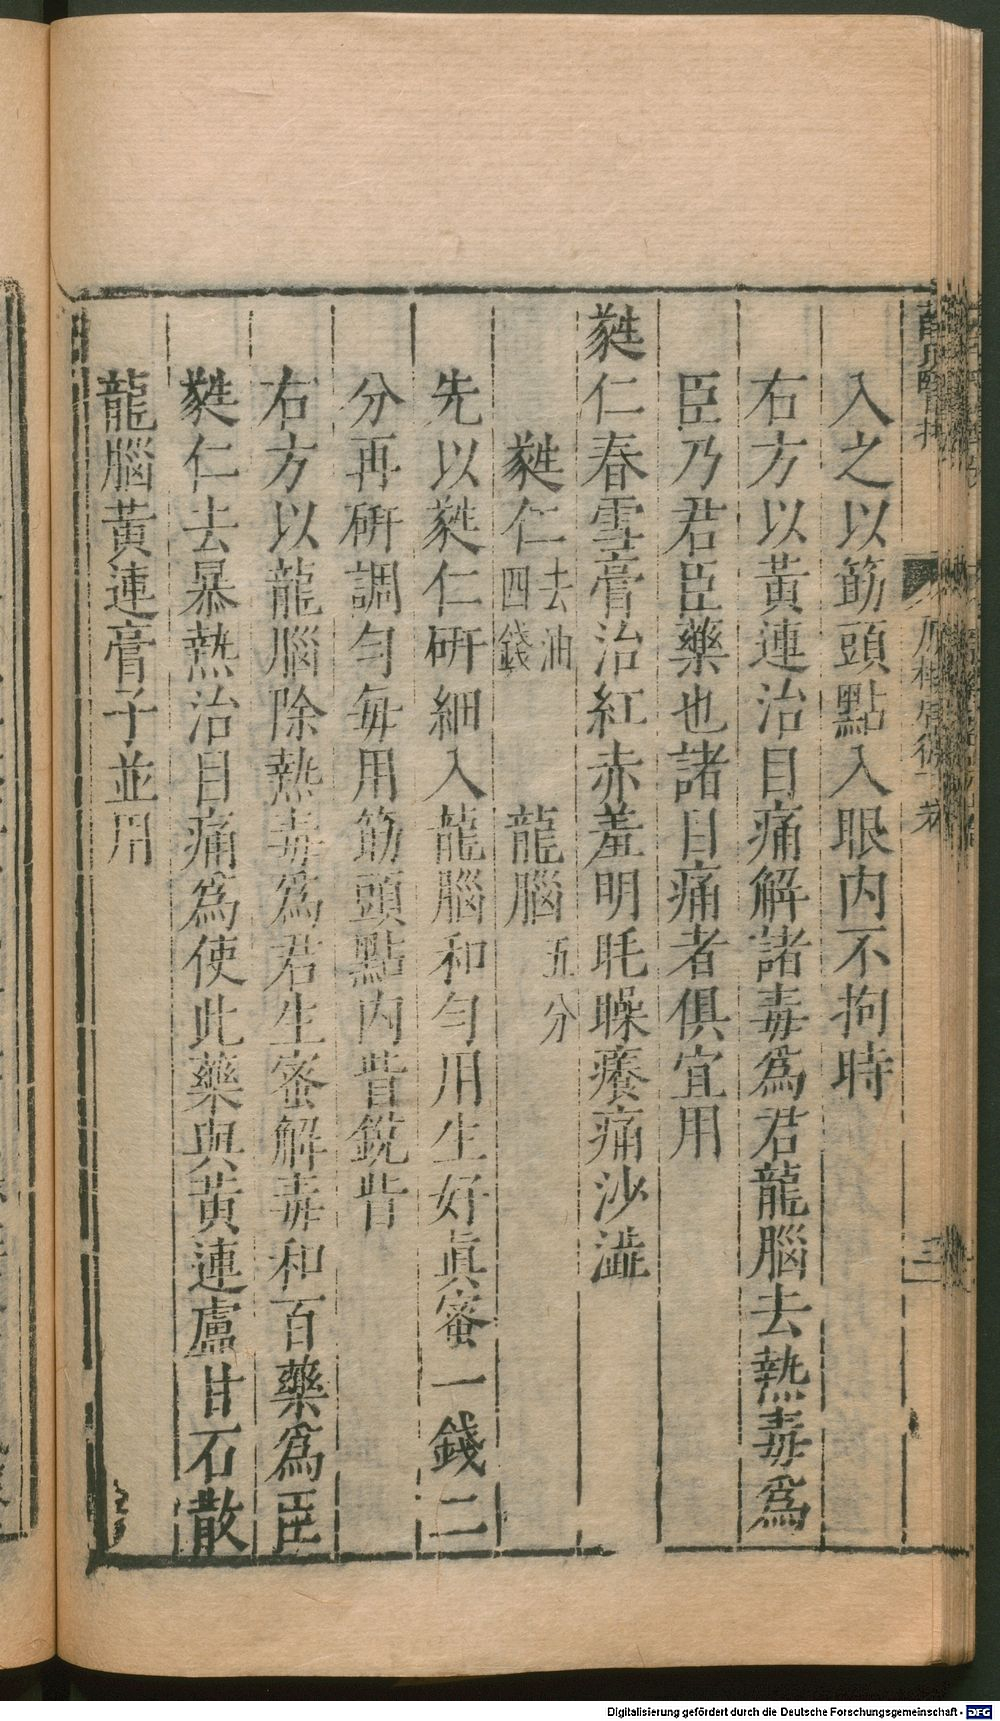 入之以筯頭點入眼内不拘時
右方以黃連治目痛解諸毒爲君龍腦去熱毒爲
臣乃君臣藥也諸目痛者俱宜用
蕤仁春雪膏治紅赤羞明眊矂癢痛沙澁
蕤仁去油四錢 龍腦五分
先以蕤仁硏細入龍腦和勻用生好眞蜜一錢二
分再硏調勻每用筯頭點内眥銳眥
右方以龍腦除熱毒爲君生蜜解毒和百藥爲臣
蕤仁去暴熱治目痛爲使此藥與黃連盧甘石散
龍腦黃連膏子並用
Digitalisierung gefördert durch die Deutsche Forschungsgemeinschaft - DFG